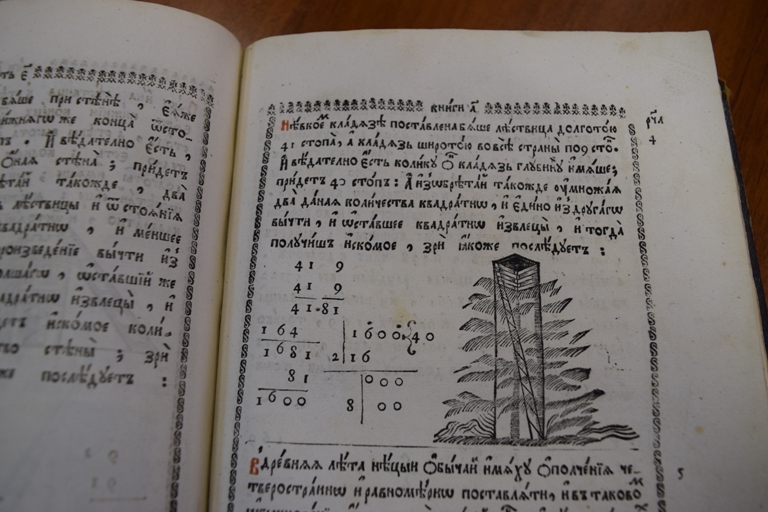 ть є҃
бѧше при стѣнѣ, є҆ѧже
нижнѧгѡ же конца ѿсто-
И҆ вѣдателно є҆сть,
ѻ҆наѧ стѣна; придетъ
такожде, два
лѣствицы и҆ ѿстоѧнїѧ
квадратнѡ, и҆ меншее
произведенїе вычти из̾
ѡ҆ставшїй же
квадратнѡ и҆звлецы, и҆
и҆скомое коли-
стѣны; зри
же послѣдуетъ :
книги а҃
рч҃а
Нѣвкоем̾ кладѧзѣ поставлена бѧше лѣствица долготою
41 стопа, а҆ кладѧзь широтою во всѣ страны по 9 сто̾п.
4
И҆ вѣдателно є҆сть колику ѻ҆ кладѧзь глубину и҆мѧше;
придетъ 40 стопъ : А҆ и҆з̾ѡбрѣтай такожде оу҆множаѧ
два данаѧ количества квадратнѡ, и҆ є҆дино из̾ другагѡ
вычти, и҆ ѡ҆ставшее квадратнѡ и҆звлецы, и҆ тогда
получишъ и҆скомое, зри ꙗ҆коже послѣдуетъ :
41 9
41 9
41 81
164 1600 40
1681 2 16
81 000
1600 8 00
В̾древнѧѧ лѣта нѣцыи ѻ҆бычай и҆мѧху ѻ҆полченїѧ че-
5
твеространнѡ и҆ равномѣрнѡ поставлѧти, и҆ в̾ таковом̾